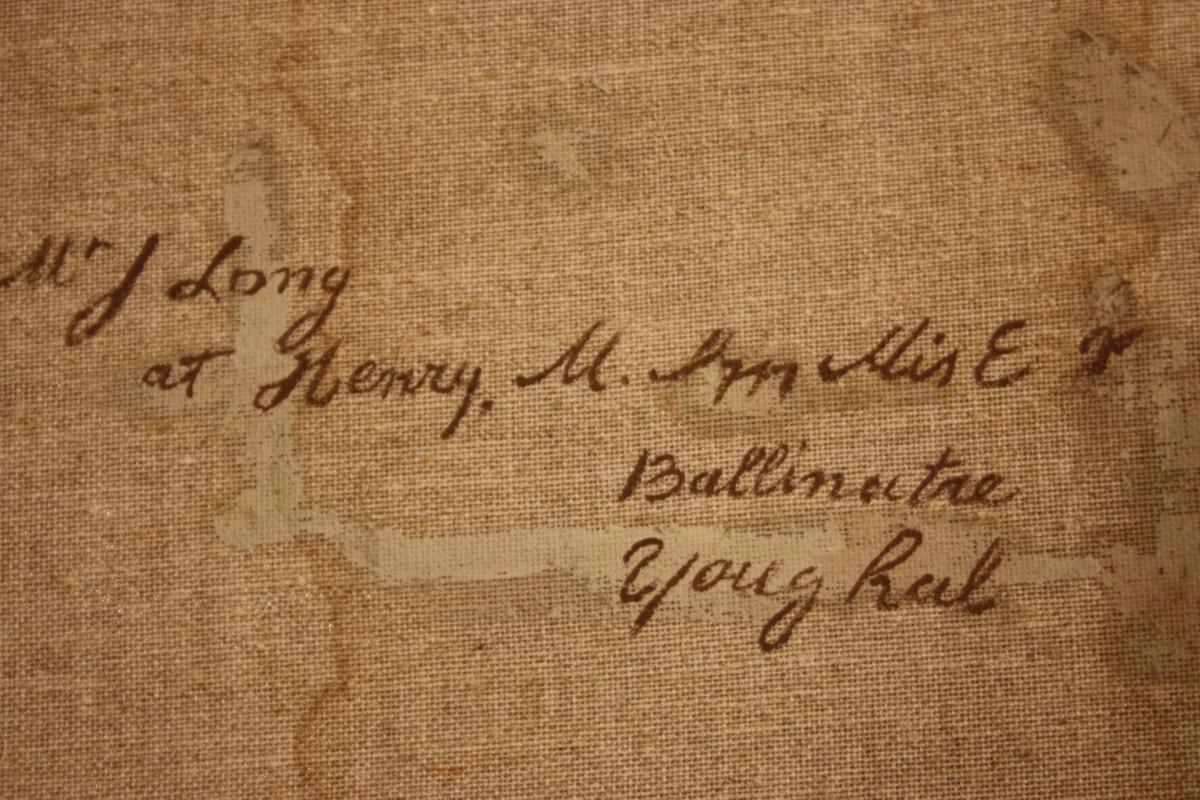 Mr J Long
at Henry. M. Smy Mis E r
Ballinatre
Youg hal